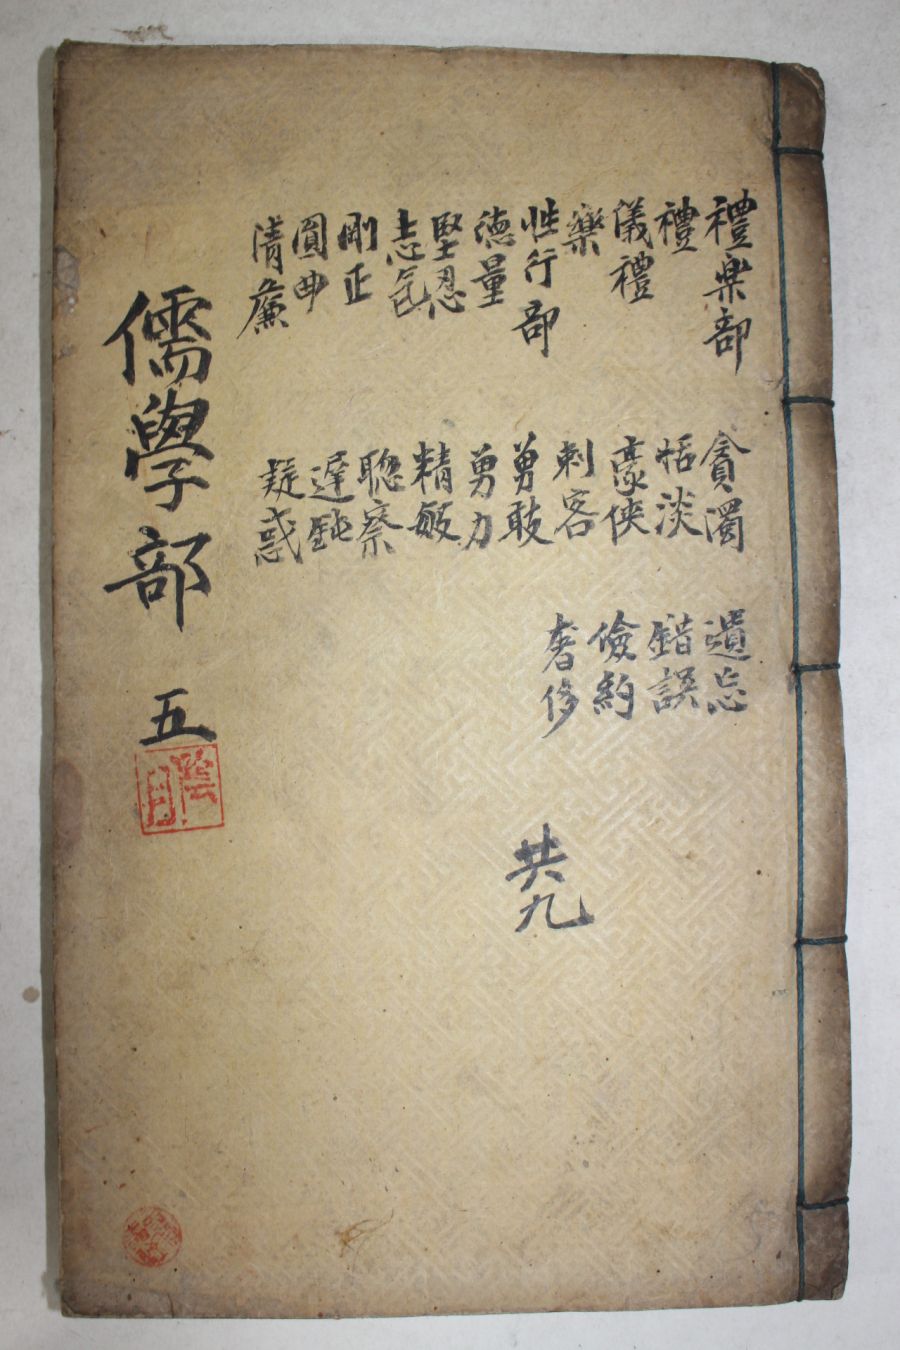 禮樂部
禮
儀禮
樂
性行部
德量
堅忍
志气
剛正
圓曲
清廉
貪濁
恬淡
豪俠
刺客
勇敢
勇力
精敏
聡察
遅鈍
疑惑
遺忘
錯誤
儉約
奢侈
共九
儒學部 五